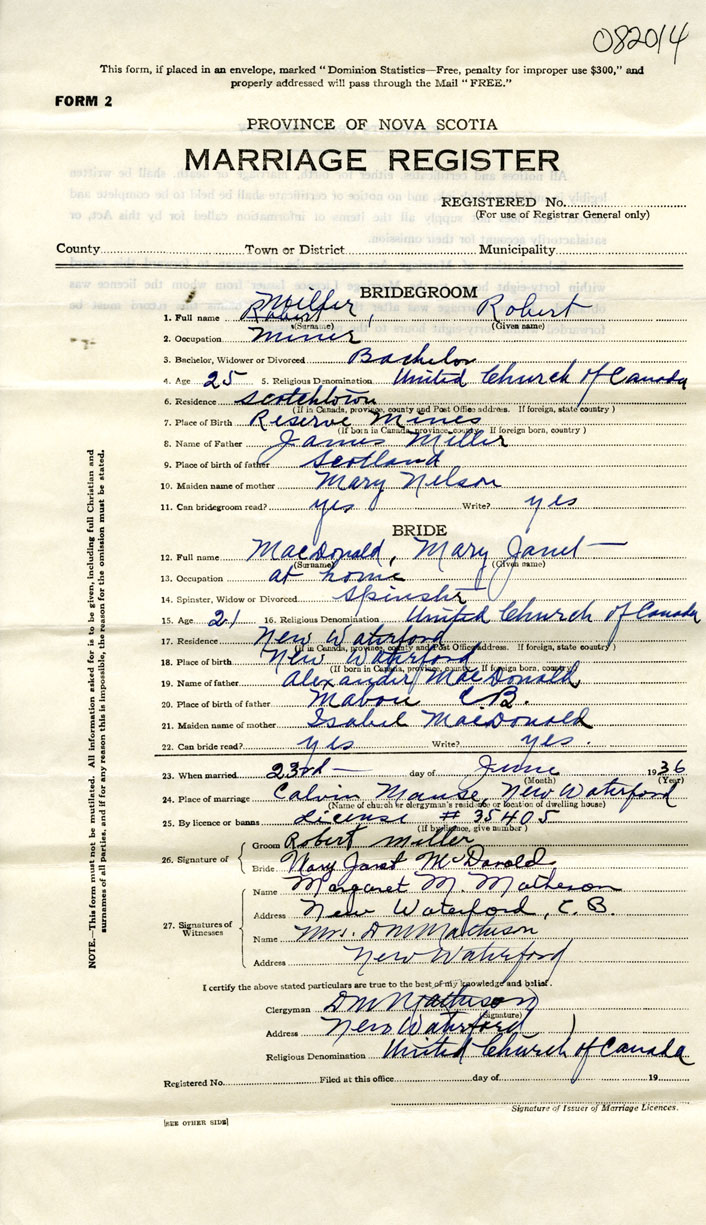 082014
This form, if placed in an envelope, marked "Dominion Statistics—Free, penalty for improper use $300," and
properly addressed will pass through the Mail "FREE."
FORM 2
PROVINCE OF NOVA SCOTIA
MARRIAGE REGISTER
REGISTERED No.
(For use of Registrar General only)
County Town or District Municipality
BRIDEGROOM
Miller
1. Full name Robert, Robert
(Surname) (Given name)
2. Occupation Miner
3. Bachelor, Widower or Divorced Bachelor
4. Age 25 5. Religious Denomination United Church of Canada
6. Residence Scotchtown
(If in Canada, province, county and Post Office address. If foreign, state country)
7. Place of Birth Reserve Mines
(If born in Canada, province, county. If foreign born, country)
8. Name of Father James Miller
9. Place of birth of father Scotland
10. Maiden name of mother Mary Nelson
11. Can bridegroom read? yes Write? yes
BRIDE
12. Full name MacDonald, Mary Janet
(Surname) (Given name)
13. Occupation at home
14. Spinster, Widow or Divorced Spinster
15. Age 21 16. Religious Denomination United Church of Canada
17. Residence New Waterford
(If in Canada, province, county and Post Office address. If foreign, state country)
18. Place of birth New Waterford
(If born in Canada, province, county. If foreign born, country)
19. Name of father Alexander MacDonald
20. Place of birth of father Mabou C.B.
21. Maiden name of mother Isabel MacDonald
22. Can bride read? yes Write? yes.
23. When married 23rd day of June 1936
(Month) (Year)
24. Place of marriage Calvin Manse, New Waterford
(Name of church or clergyman's residence or location of dwelling house)
25. By licence or banns License # 35405
(If by licence, give number)
26. Signature of
Groom Robert Miller
Bride Mary Janet McDonald
27. Signatures of Witnesses
Name Margaret M. Matheson
Address New Waterford, C.B.
Name Mrs. D M Matheson
Address New Waterford
I certify the above stated particulars are true to the best of my knowledge and belief.
Clergyman D M Matheson
(Signature)
Address New Waterford
Religious Denomination United Church of Canada
Registered No. Filed at this office day of 19
Signature of Issuer of Marriage Licences.
[SEE OTHER SIDE]
NOTE.—This form must not be mutilated. All information asked for is to be given, including full Christian and
surnames of all parties, and if for any reason this is impossible, the reason for the omission must be stated.